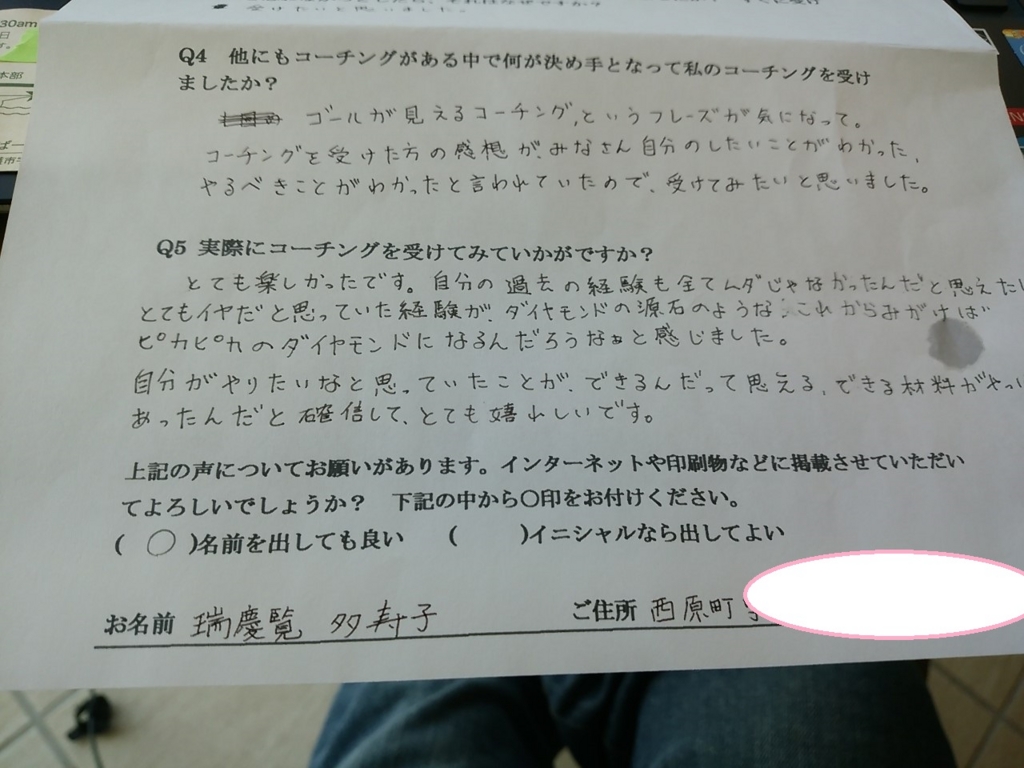 30am
日
す。
本部
受けたいと思いました。
Q4 他にもコーチングがある中で何が決め手となって私のコーチングを受け
ましたか？
ゴールが見えるコーチング、というフレーズが気になって。
コーチングを受けた方の感想が、みなさん自分のしたいことがわかった、
やるべきことがわかったと言われていたので、受けてみたいと思いました。
Q5 実際にコーチングを受けてみていかがですか？
とても楽しかったです。自分の過去の経験も全てムダじゃなかったんだと思えたし
とてもイヤだと思っていた経験が、ダイヤモンドの源石のような、これからみがけば
ピカピカのダイヤモンドになるんだろうなぁと感じました。
自分がやりたいなと思っていたことが、できるんだって思える、できる材料がやっ
あったんだと確信して、とても嬉しいです。
上記の声についてお願いがあります。インターネットや印刷物などに掲載させていただい
てよろしいでしょうか？ 下記の中から〇印をお付けください。
( 〇 )名前を出しても良い ( )イニシャルなら出してよい
お名前 瑞慶覧 多寿子 ご住所 西原町